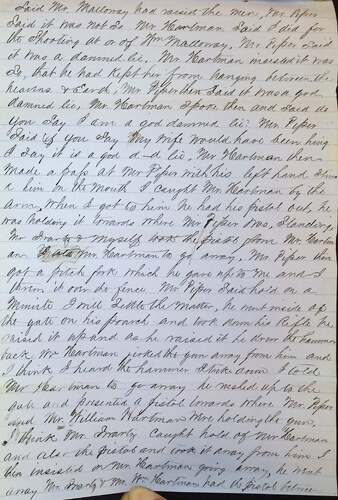 Said Mr. Malloway had raised the mare, Mr Piper
Said it was not So Mr Hartman Said I did for
the Shooting at or of Wm Malloway, Mr. Piper Said
it was a damned lie. Mr Hartman it was
So, that he had kept her from hanging between the
heavens & Earth, Mr Piper then Said it was a god
damned lie, Mr. Hartman Spoke then and Said do
you Say I am a god damned lie: Mr Piper
Said if you Say My Wife would have been hung
I Say it is a god d-d lie, Mr Hartman then
Made a pass at Mr Piper with his left hand
him on the Mouth I Caught Mr Hartman by the
Arm, When I got to him he had his pistol out, he
was holding it towards where Mr Piper was Standing,
Mr & Myself took the pistol from Mr. Hartman
an Mr. Hartman to go away, Mr Piper then
got a pitch fork which he gave up to me and I
threw it over the fence Mr Piper Said hold on a
Minute I will Settle the Matter, he went inside of
the gate on his porch and took down his Rifle he
raised it up and as he raised it he drew the hammer
back Wm Hartman jerked the gun away from him and
I think I heard the hammer Click down I told
Mr Hartman to go away he rushed up to the
gate and presented a pistol towards where Mr. Piper
and Mr. William Hartman were holding the gun,
I think Mr. caught hold of Mr Hartman
and also the pistol and took it away from him I
then insisted on Mr. Hartman going away, he went
away. Mr. & Mr. Wm Hartman had the pistol